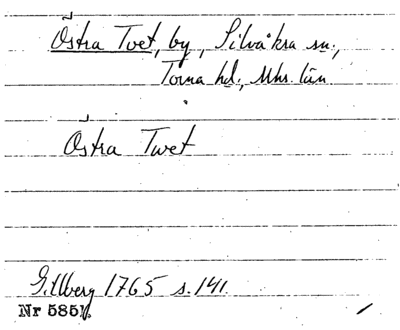 Östra Tvet, by, Silvåkra sn.,
Torna hd., Mhs. län
Östra Twet
Gillberg 1765 s. 141.
Nr 5851.